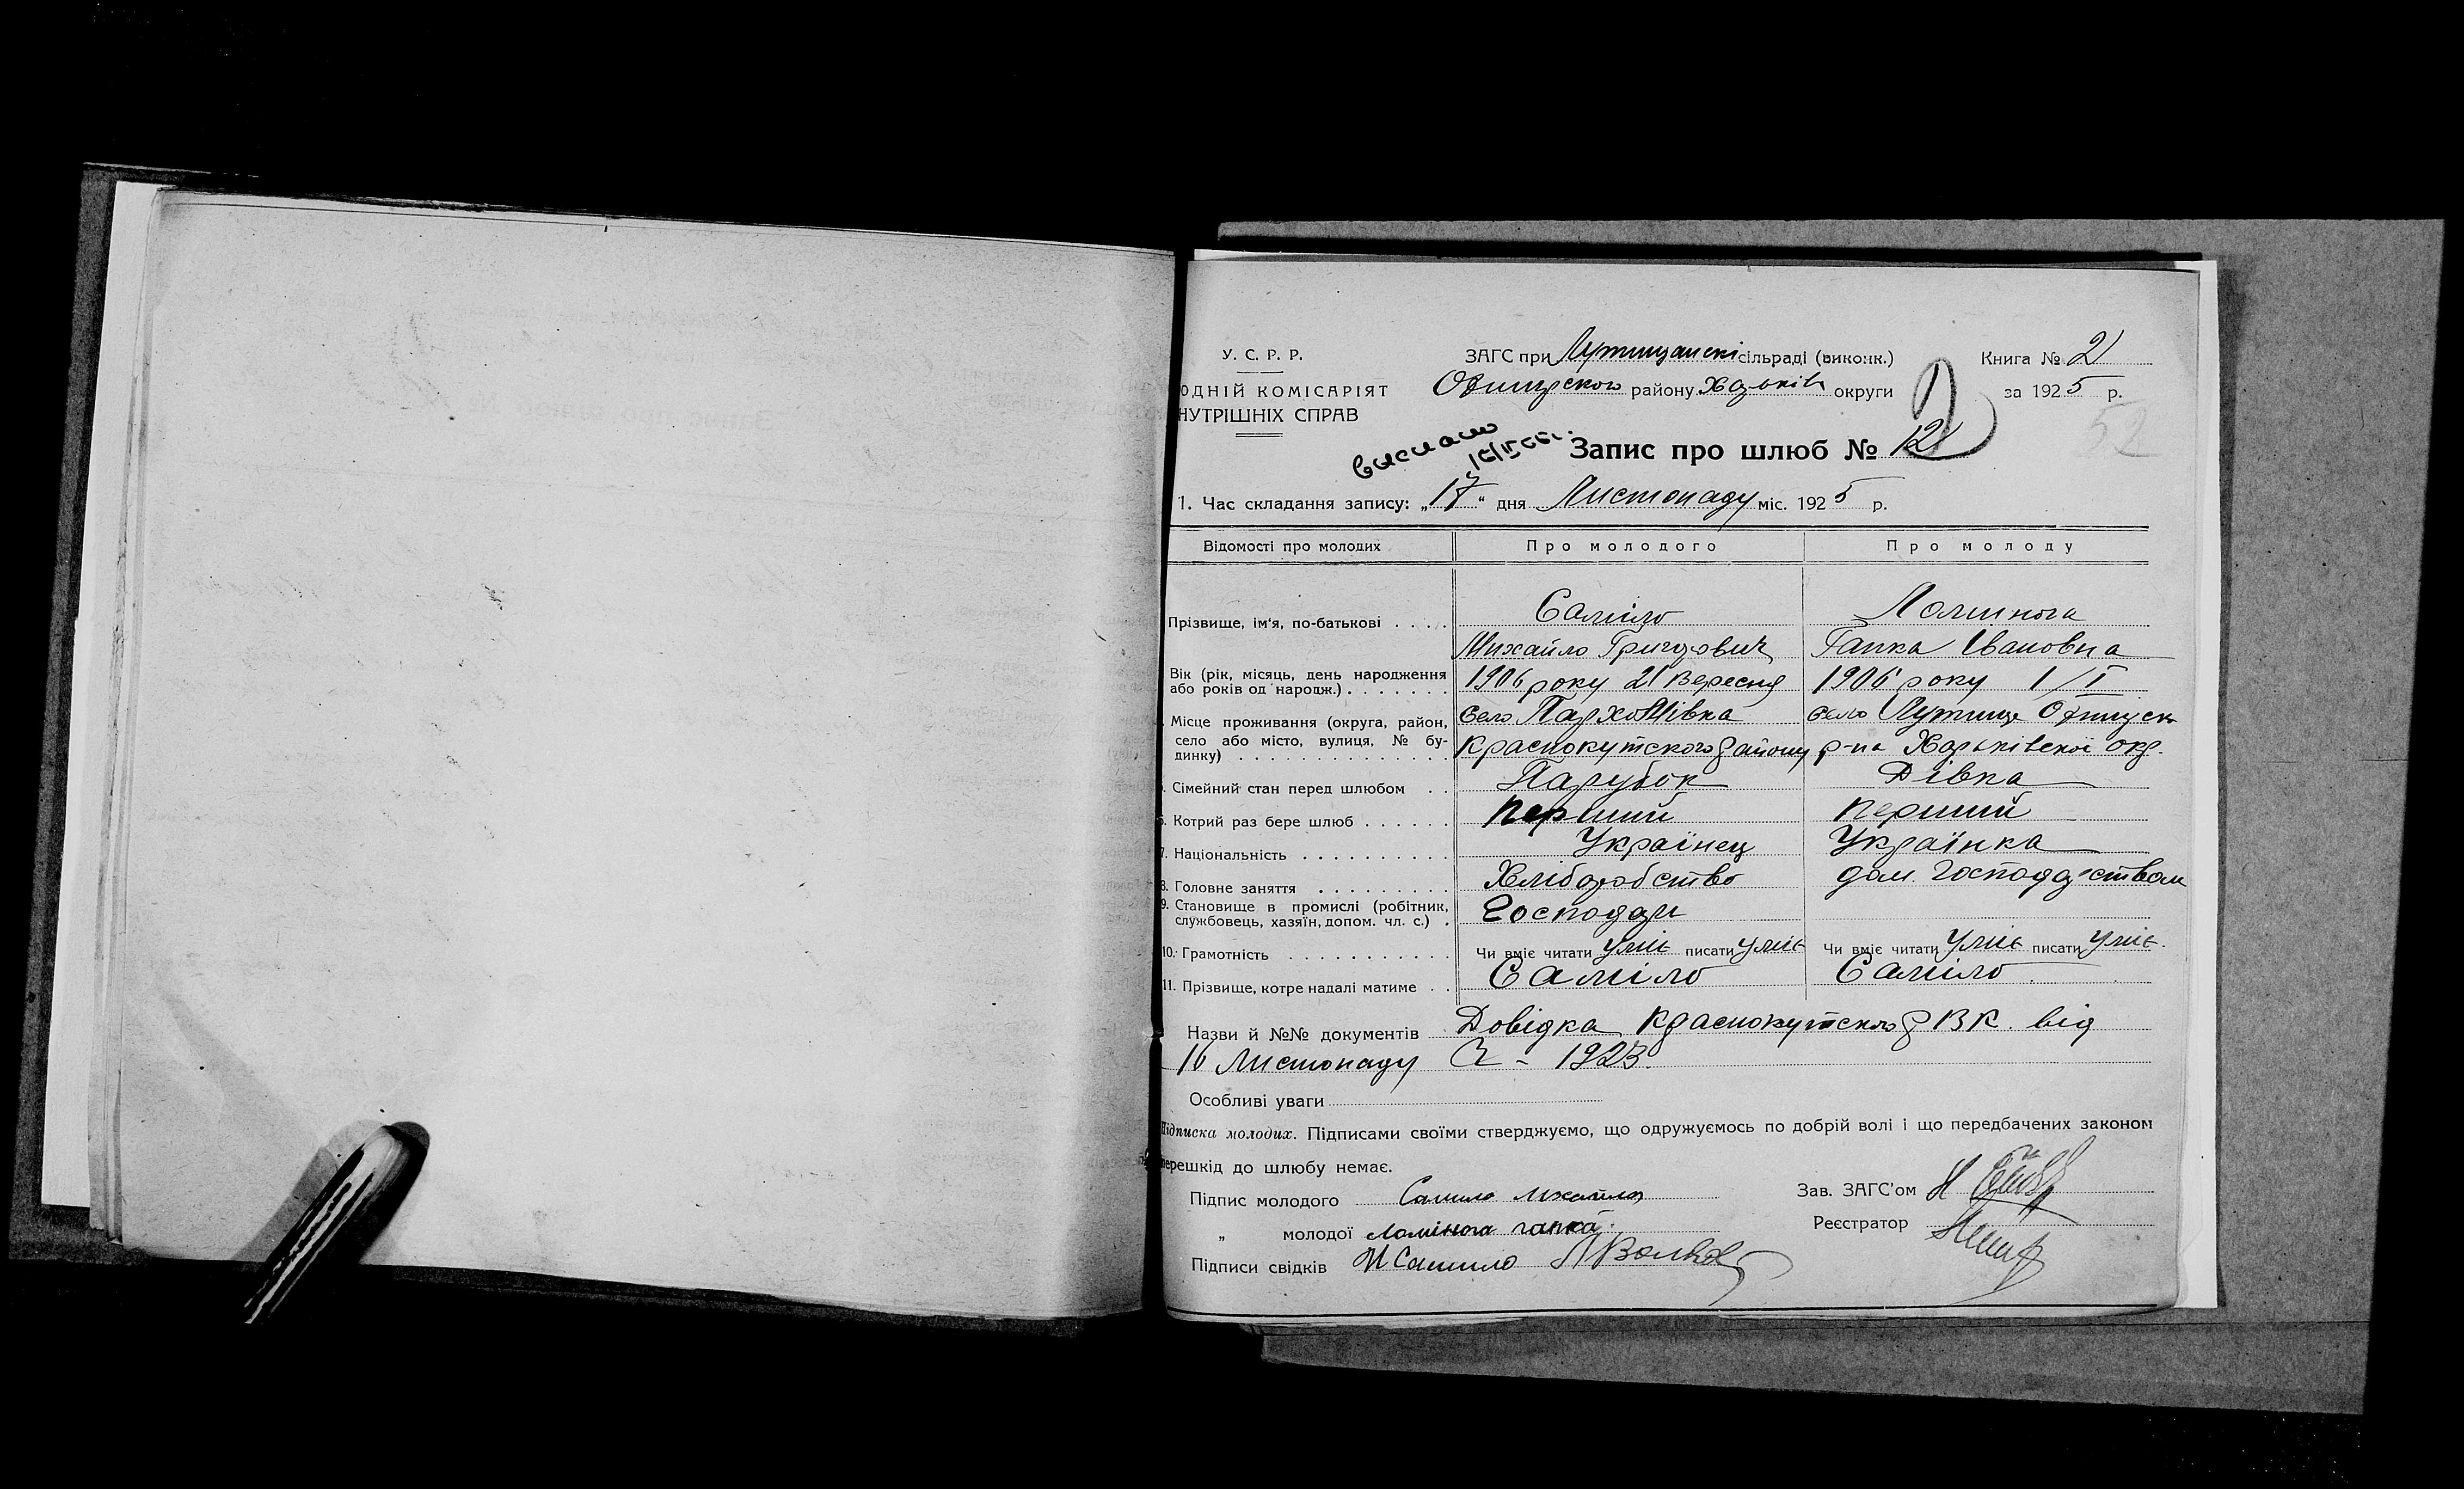 У. С. Р. Р.
ОДНІЙ КОМІСАРІЯТ
НУТРІШНІХ СПРАВ
ЗАГС при Лутищанскі сільраді (виконк.)
Охтирского району Харьків округи
Книга № 2
за 1925 р.
52
Виписано
Запис про шлюб № 12
1. Час складання запису: „17“ дня Листопаду міс. 1925 р.
Відомості про молодих Про молодого Про молоду
Прізвище, ім'я, по-батькові . . . . Саміло Ломинога
Михайло Григорович Гапка Івановна
Вік (рік, місяць, день народження
або років од народж.) . . . . . . . 1906 року 21 Вересня 1906 року 1/I
Місце проживання (округа, район, село Пархомівка село Лутище Охтирск
село або місто, вулиця, № бу-
динку) . . . . . . . . . . . . . . Краснокутского району р-на Харьківскої окр.
Сімейний стан перед шлюбом . . Парубок Дівка
6. Котрий раз бере шлюб . . . . . . перший перший
7. Національність . . . . . . . . . . Українец Українка
8. Головне заняття . . . . . . . . . Хліборобство дом. господарством
9. Становище в промислі (робітник,
службовець, хазяїн, допом. чл. с.) . Господар
10. Грамотність . . . . . . . . . . . Чи вміє читати уміє писати уміє Чи вміє читати уміє писати уміє.
11. Прізвище, котре надалі матиме . . Саміло Саміло
Назви й №№ документів Довідка Краснокутского РВК. від
16 Листопаду 1923.
Особливі уваги
Підписка молодих. Підписами своїми стверджуємо, що одружуємось по добрій волі і що передбачених законом
перешкід до шлюбу немає.
Підпис молодого Самило Михайло Зав. ЗАГС'ом
„ молодої Ломінога гапка Реєстратор
Підписи свідків И Самило Л Волков